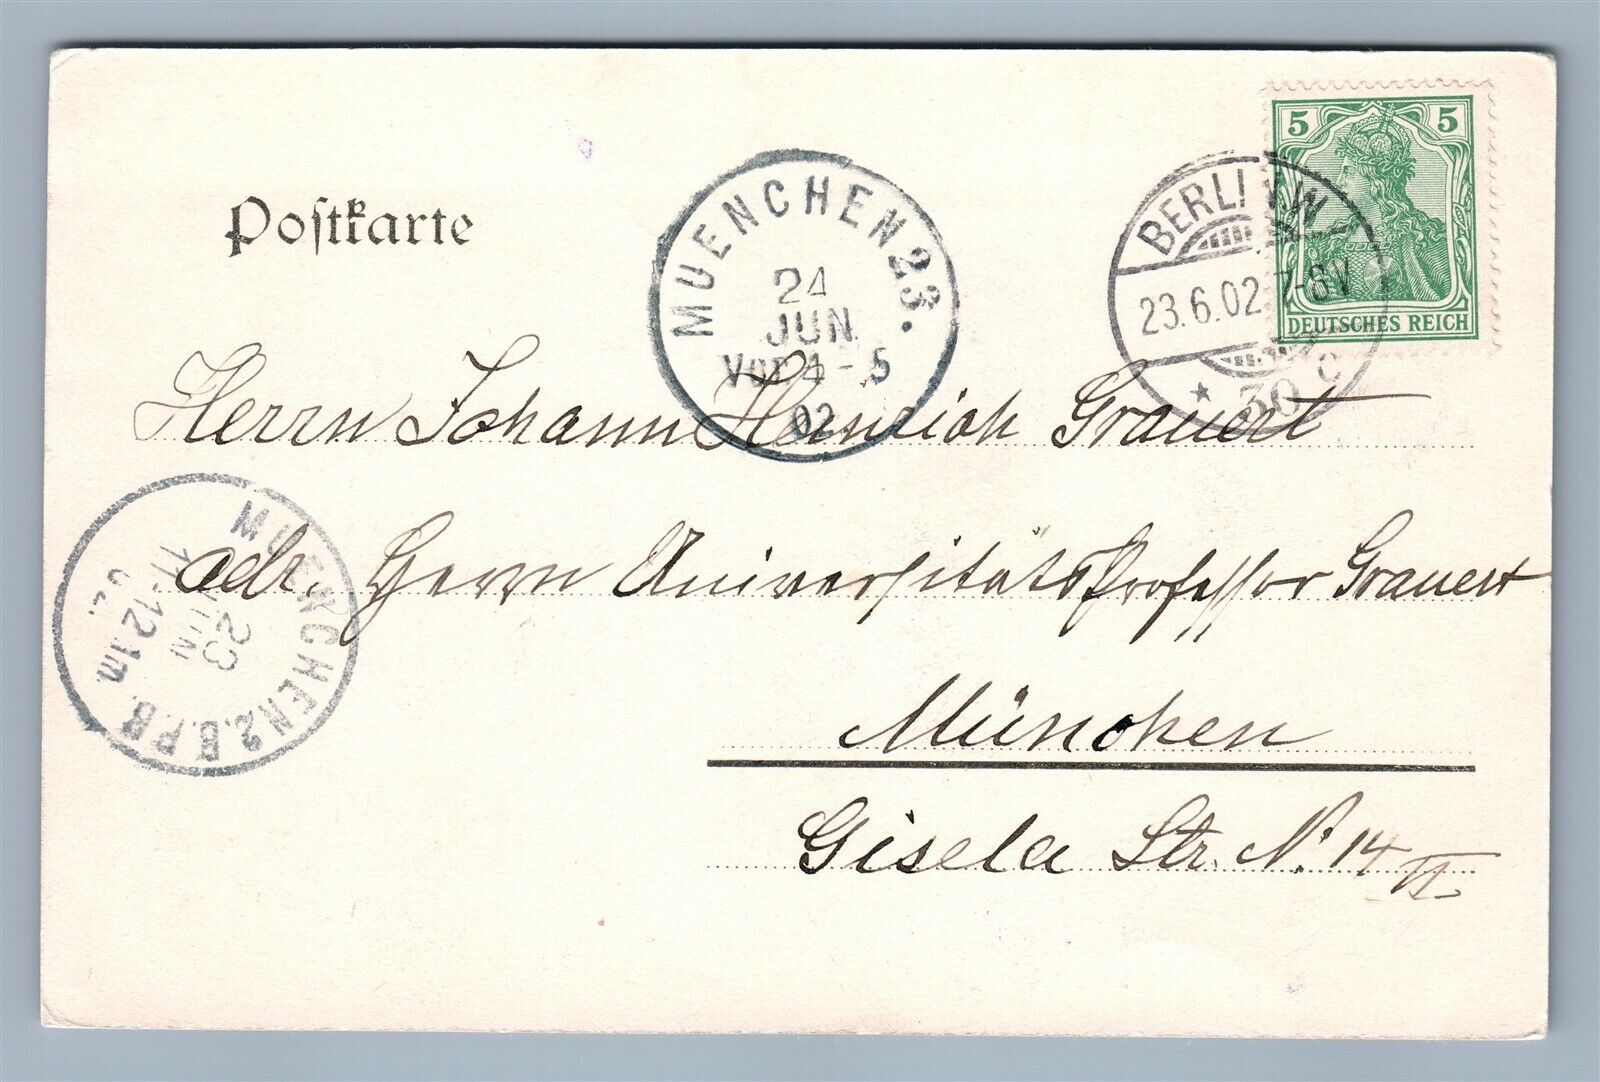 Postkarte
5 5
DEUTSCHES REICH
BERLIN.W.
23.6.02 7-8V
* 30 c
MUENCHEN 23.
24
JUN
Vor 4-5
02
Herrn Johann Heinrich Grauert
adr. Herrn UniversitätsProfessor Grauert
München
Gisela Str. N° 14 II
MUENCHEN 2. B.P.B
23
JUN
11-12
02.